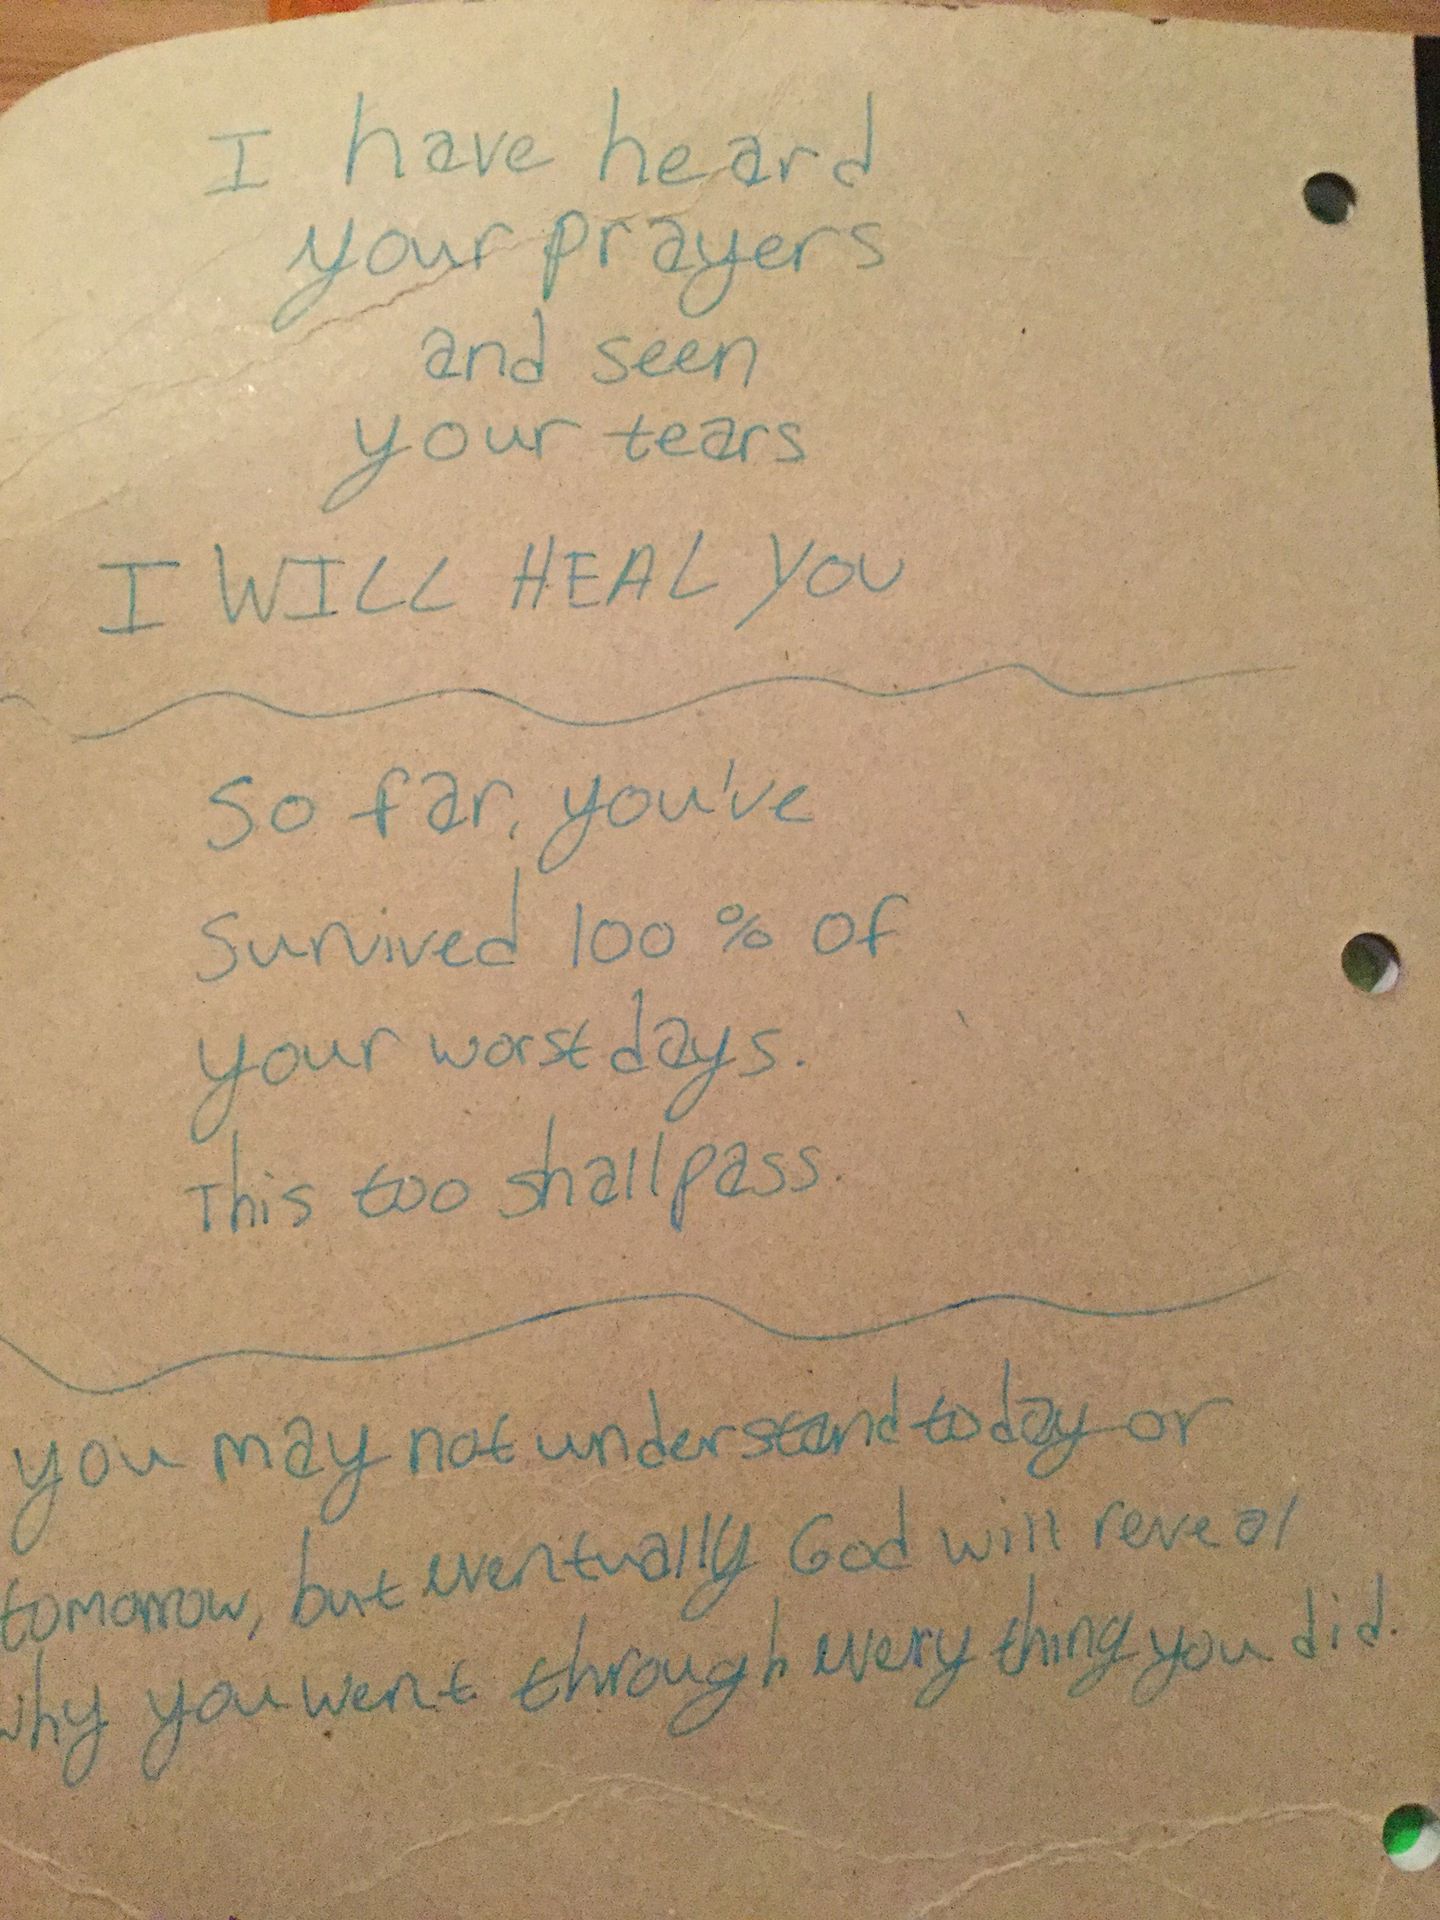 I have heard
your prayers
and seen
your tears
I WILL HEAL YOU
So far, you've
Survived 100% of
your worst days.
This too shall pass.
you may not understand today or
tomorrow, but eventually God will reveal
why you went through every thing you did.